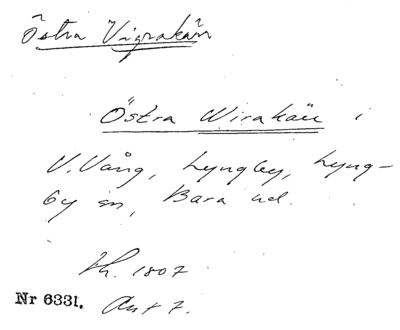 Östra Vigrakärr
Östra Wirakäu i
V. Vång, Lyngby, Lyng-
by sn, Bara hd.
1807
Nr 6331. Akt 7.